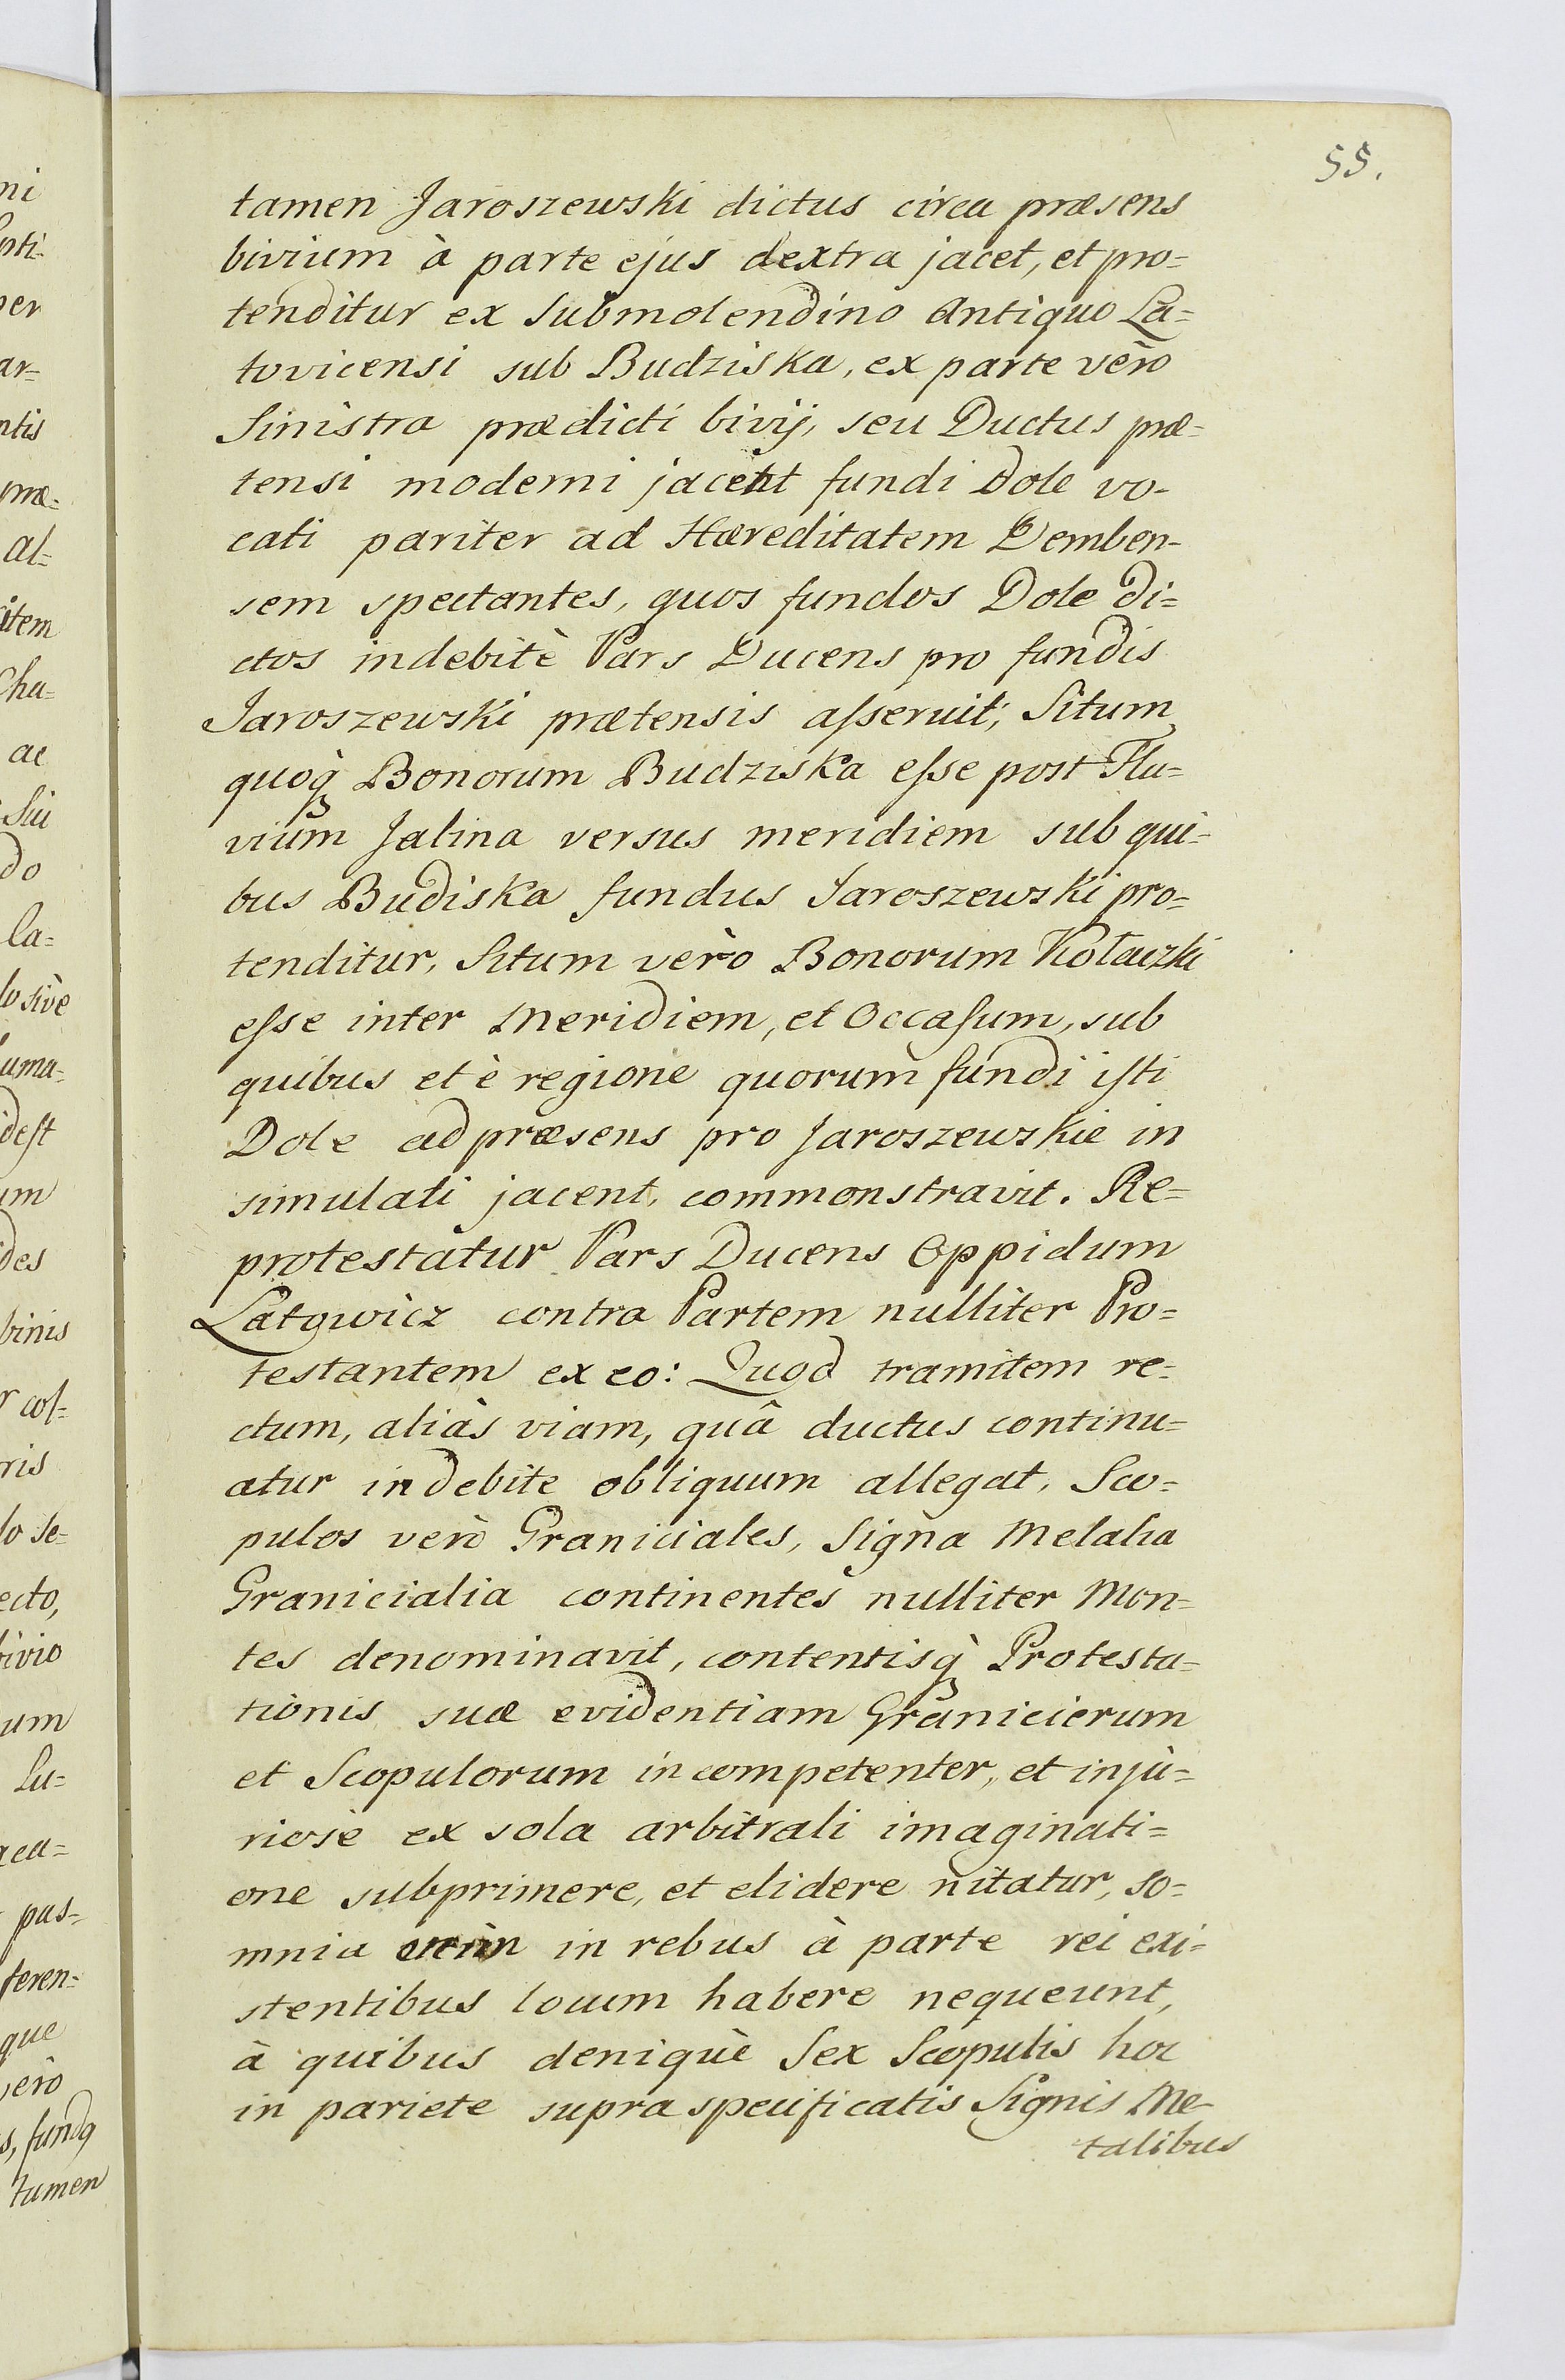 55.
tamen Jaroszewski dictus circa præsens
bivium à parte ejus dextra jacet, et pro=
tenditur ex Submolendino Antiquo La=
tovicensi sub Budziska, ex parte verò
Sinistra prædicti bivij, seu Ductus præ=
tensi moderni jacent fundi Dole vo-
cati pariter ad Hæreditatem Demben-
sem spectantes, quos fundos Dole di=
ctos indebitè Pars Ducens pro fundis
Jaroszewski prætensis asseruit; Situm
quoq̀ Bonorum Budziska esse post Flu=
vium Jalina versus meridiem sub qui-
bus Budiska fundus Jaroszewski pro=
tenditur, Situm verò Bonorum Kołaczki
esse inter Meridiem, et Occasum, sub
quibus et è regione quorum fundi isti
Dole ad præsens pro Jaroszewskie in
simulati jacent, commonstravit. Re=
protestatur Pars Ducens Oppidum
Latowicz contra Partem nulliter Pro=
testantem ex eo: Quod tramitem re=
ctum, aliàs viam, quâ ductus continu=
atur indebite obliquum allegat, Sco=
pulos verò Graniciales, Signa Metalia
Granicialia continentes nulliter Mon=
tes denominavit, contentisq̀ Protesta=
tionis suæ evidentiam Granicierum
et Scopulorum incompetenter, et inju=
riosè ex sola arbitrali imaginati=
one subprimere, et elidere nitatur, so=
mnia in rebus à parte rei exi=
stentibus locum habere nequeunt,
à quibus deniquè Sex Scopulis hoc
in pariete supra specificatis Signis Me-
talibus